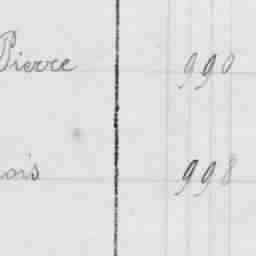 Pierre 990
ois 998